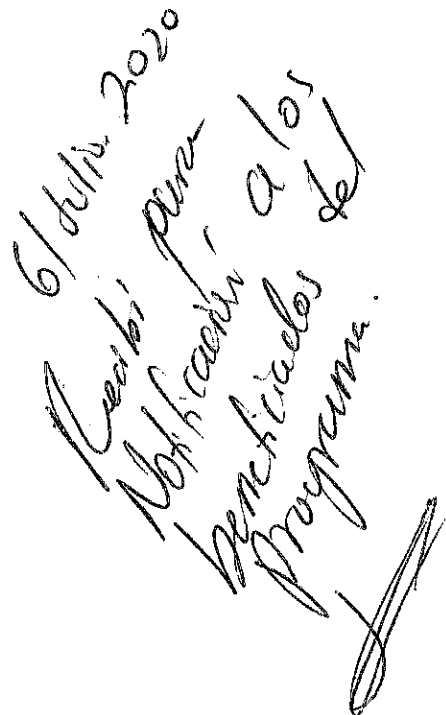 6/Julio. 2020
Recibí para
Notificación a los
beneficiados del
programa.